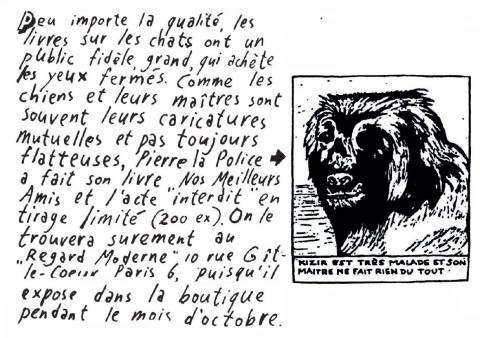 Peu importe la qualité, les
livres sur les chats ont un
public fidèle, grand, qui achète
les yeux fermés. Comme les
chiens et leurs maîtres sont
souvent leurs caricatures
mutuelles et pas toujours
flatteuses, Pierre la Police ➡
a fait son livre "Nos Meilleurs
Amis et l'acte interdit" en
tirage limité (200 ex). On le
trouvera surement au
"Regard Moderne" 10 rue Gît-
le-Coeur Paris 6, puisqu'il
expose dans la boutique
pendant le mois d'octobre.
KIZIR EST TRÈS MALADE ET SON
MAITRE NE FAIT RIEN DU TOUT.